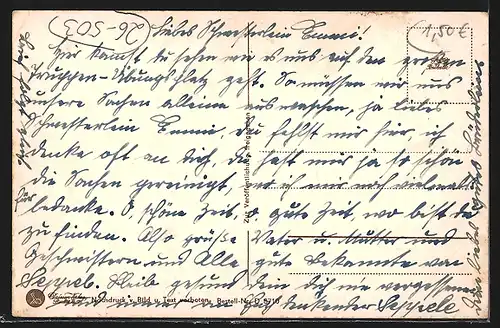 (26-503)
1,50 €
Liebes Schwesterlein Emmi!
Hier kannst du sehen wie es uns auf dem großen
Truppen-Übungsplatz geht. So müssen wir uns
unsere Sachen alleine auswaschen, ja liebes
Schwesterlein Emmi, du fehlst mir hier, ich
denke oft an dich, du hast mir ja so schön
die Sachen gereinigt, wo ich mich vielmals
für bedanke. O, schöne Zeit, o gute Zeit, wo bist du
zu finden. Also grüße Vater u. Mutter und
Geschwistern und Alle gute Bekannte von
Seppiele. Bleib gesund dein dich nie vergessener
denkender Seppiele
Zur Veröffentlichung freigegeben
Nachdruck v. Bild u. Text verboten. Bestell-Nr. D 6710